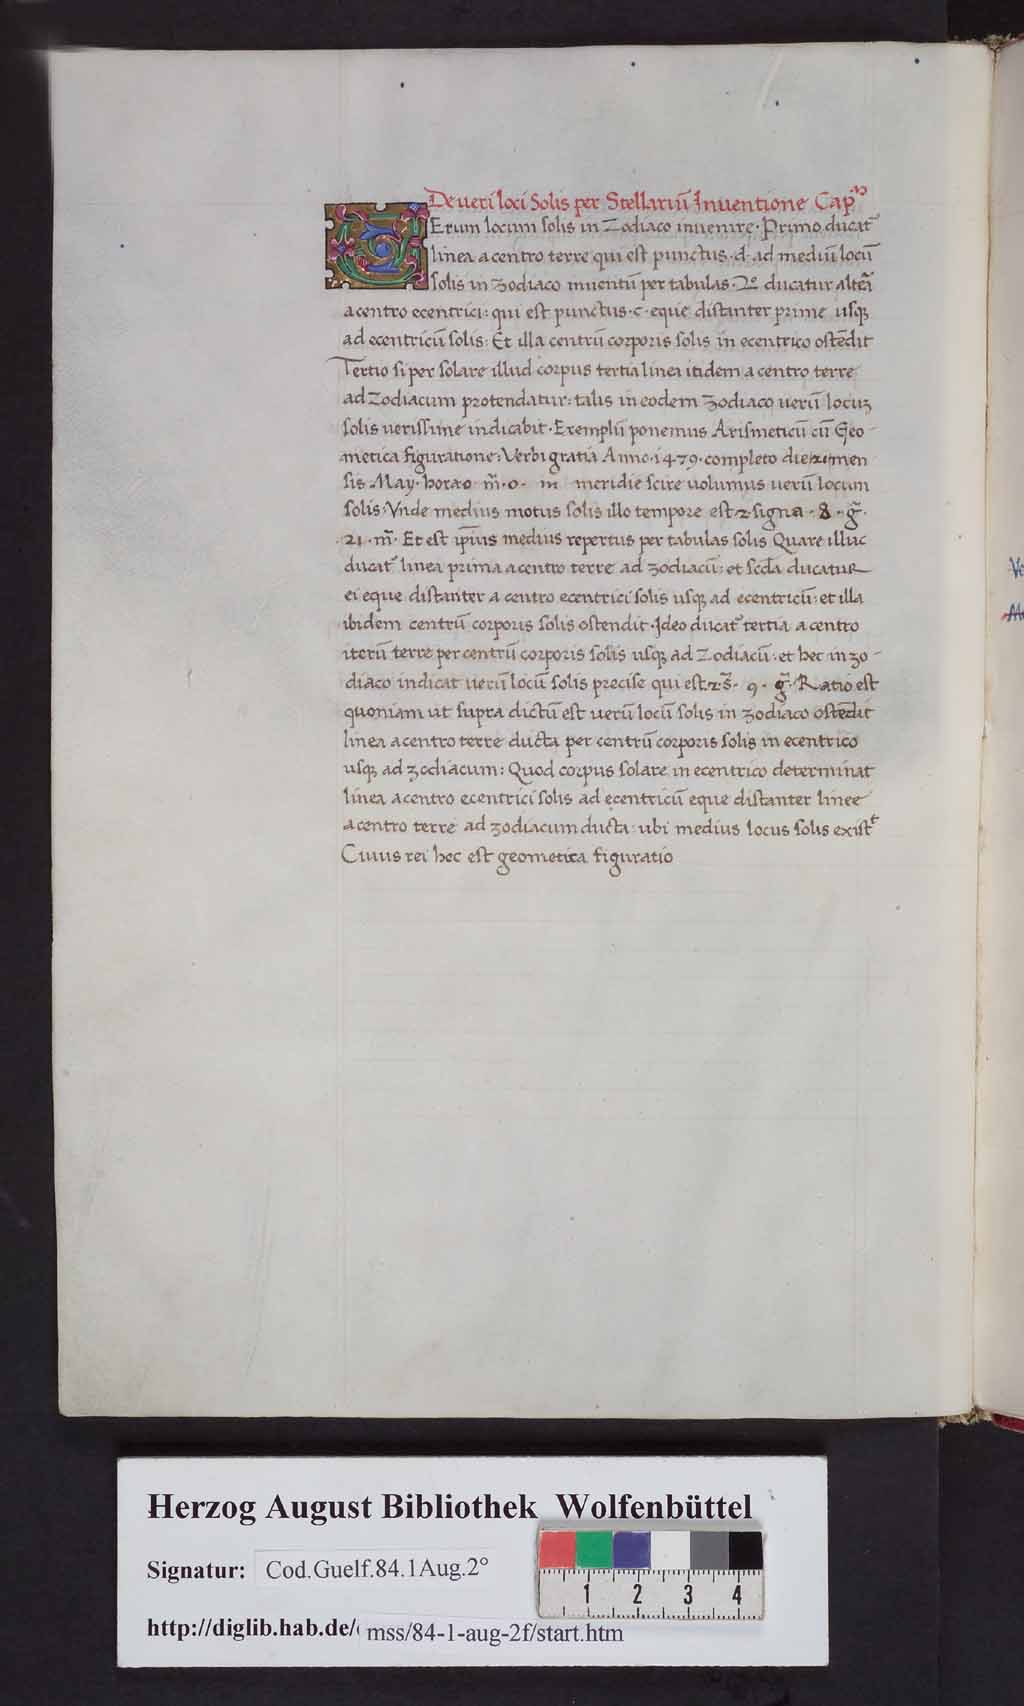 De veri loci Solis per Stellariū Inventione Capᵐ
Erum locum solis in Zodiaco invenire· Primo ducat᷑
linea a centro terre qui est punctus ·d· ad mediū locū
solis in zodiaco inventū per tabulas· 2º ducatur altēa
a centro ecentrici: qui est punctus ·c· eque distanter prime usqꝫ
ad ecentricū solis: Et illa centrū corporis solis in ecentrico ostēdit
Tertio si per solare illud corpus tertia linea itidem a centro terre
ad Zodiacum protendatur: talis in eodem Zodiaco uerū locuꝫ
solis uerissime indicabit· Exemplū ponemus Arismeticū cū Geo-
metica figuratione· Verbi gratia Anno·1479·completo die men
sis May· hora·o· m̄·o· in meridie scire uolumus uerū locum
solis· Vnde medius motus solis illo tempore est·2·signa·8·ḡ·
·21·m̄· Et est ip̄ius medius repertus per tabulas solis Quare illuc
ducat᷑ linea prima a centro terre ad zodiacū: et scd̄a ducatur
ei eque distanter a centro ecentrici solis usqꝫ ad ecentricū: et illa
ibidem centrū corporis solis ostendit· Ideo ducat᷑ tertia a centro
iterū terre per centrū corporis solis usqꝫ ad Zodiacū: et hec in zo-
diaco indicat uerū locū solis precise qui est·2·s̄· 9· ḡ· Ratio est
quoniam ut supra dictū est uerū locū solis in zodiaco ostēdit
linea a centro terre ducta per centrū corporis solis in ecentrico
usqꝫ ad zodiacum: Quod corpus solare in ecentrico determinat
linea a centro ecentrici solis ad ecentricū eque distanter linee
a centro terre ad zodiacum ducta· ubi medius locus solis existᵗ
Cuius rei hec est geometica figuratio
Herzog August Bibliothek Wolfenbüttel
Signatur: Cod.Guelf.84.1Aug.2°
1 2 3 4
http://diglib.hab.de/ mss/84-1-aug-2f/start.htm